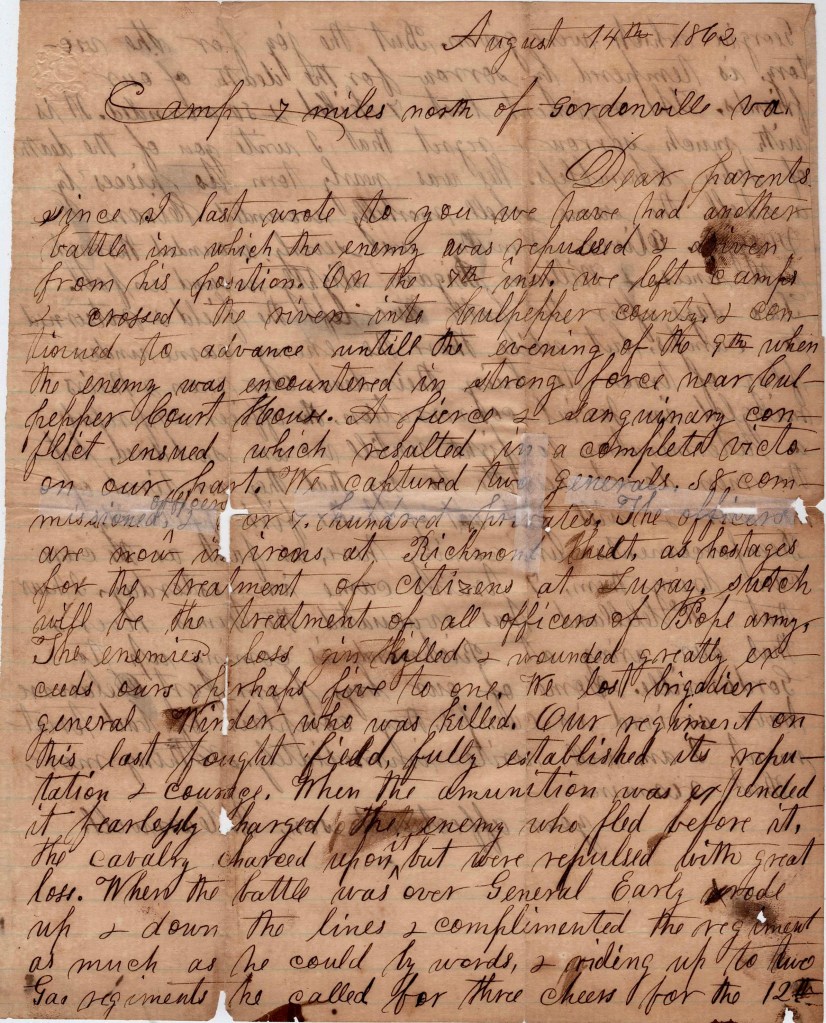 August 14th 1862
Camp 7 miles north of Gordonville va.
Dear parents
since I last wrote to you we have had another
battle in which the enemy was repulsed & driven
from his position. On the 7th inst. we left camps
& crossed the river into Culpepper county, & con-
tinued to advance untill the evening of the 9th when
the enemy was encountered in strong force near Cul-
pepper Court House. A fierce & sanguinary con-
flict ensued which resulted in a complete victo-
on our part. We captured two generals. 58 com-
missioned, officers & or 7. hundred privates. The officers
are now in irons, at Richmond theat, as hostages
for the treatment of citizens at Luray, sutch
will be the treatment of all officers of Pope army,
The enemies loss in killed & wounded greatly ex-
ceeds ours perhaps five to one. We lost brigadier
general Winder who was killed. Our regiment on
this last fought field, fully established its repu-
tation & courace. When the amunition was expended
it fearlessly charged the enemy who fled before it,
the cavalry charced upon it, but were repulsed with great
lose. When the battle was over General Early wrode
up & down the lines & complimented the regiment
as much as he could by words, & riding up to two
Gas regiments he called for three cheers for the 12th